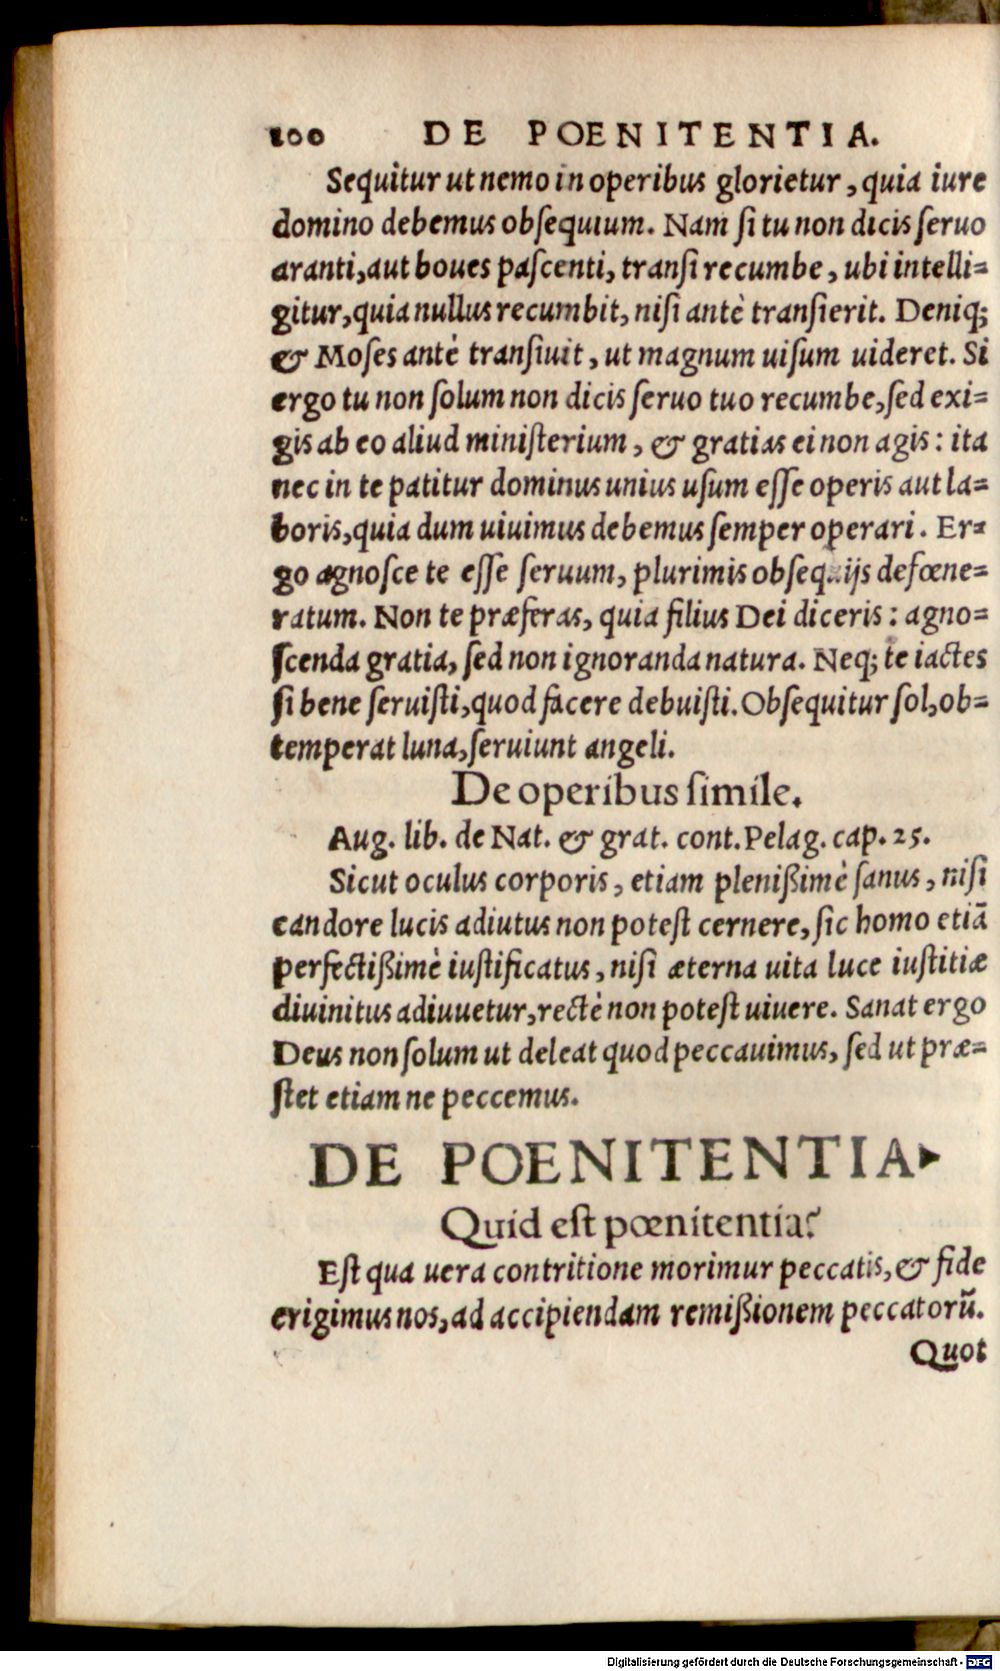 100 DE POENITENTIA.
Sequitur ut nemo in operibus glorietur, quia iure
domino debemus obſequium. Nam ſi tu non dicis ſeruo
aranti, aut boues paſcenti, tranſi recumbe, ubi intelli=
gitur, quia nullus recumbit, niſi antè tranſierit. Deniq;
& Moſes antè tranſiuit, ut magnum uiſum uideret. Si
ergo tu non ſolum non dicis ſeruo tuo recumbe, ſed exi=
gis ab eo aliud miniſterium, & gratias ei non agis: ita
nec in te patitur dominus unius uſum eſſe operis aut la=
boris, quia dum uiuimus debemus ſemper operari. Er=
go agnoſce te eſſe ſeruum, plurimis obſequijs defœne=
ratum. Non te præferas, quia filius Dei diceris: agno=
ſcenda gratia, ſed non ignoranda natura. Neq; te iactes
ſi bene ſeruiſti, quod facere debuiſti. Obſequitur ſol, ob=
temperat luna, ſeruiunt angeli.
De operibus ſimile.
Aug. lib. de Nat. & grat. cont. Pelag. cap. 25.
Sicut oculus corporis, etiam pleniſsimè ſanus, niſi
candore lucis adiutus non poteſt cernere, ſic homo etiã
perfectiſsimè iuſtificatus, niſi æterna uita luce iuſtitiæ
diuinitus adiuuetur, rectè non poteſt uiuere. Sanat ergo
Deus non ſolum ut deleat quod peccauimus, ſed ut præ=
ſtet etiam ne peccemus.
DE POENITENTIA
Quid eſt pœnitentia?
Eſt qua uera contritione morimur peccatis, & fide
erigimus nos, ad accipiendam remiſsionem peccatorũ.
Quot
Digitalisierung gefördert durch die Deutsche Forschungsgemeinschaft - DFG